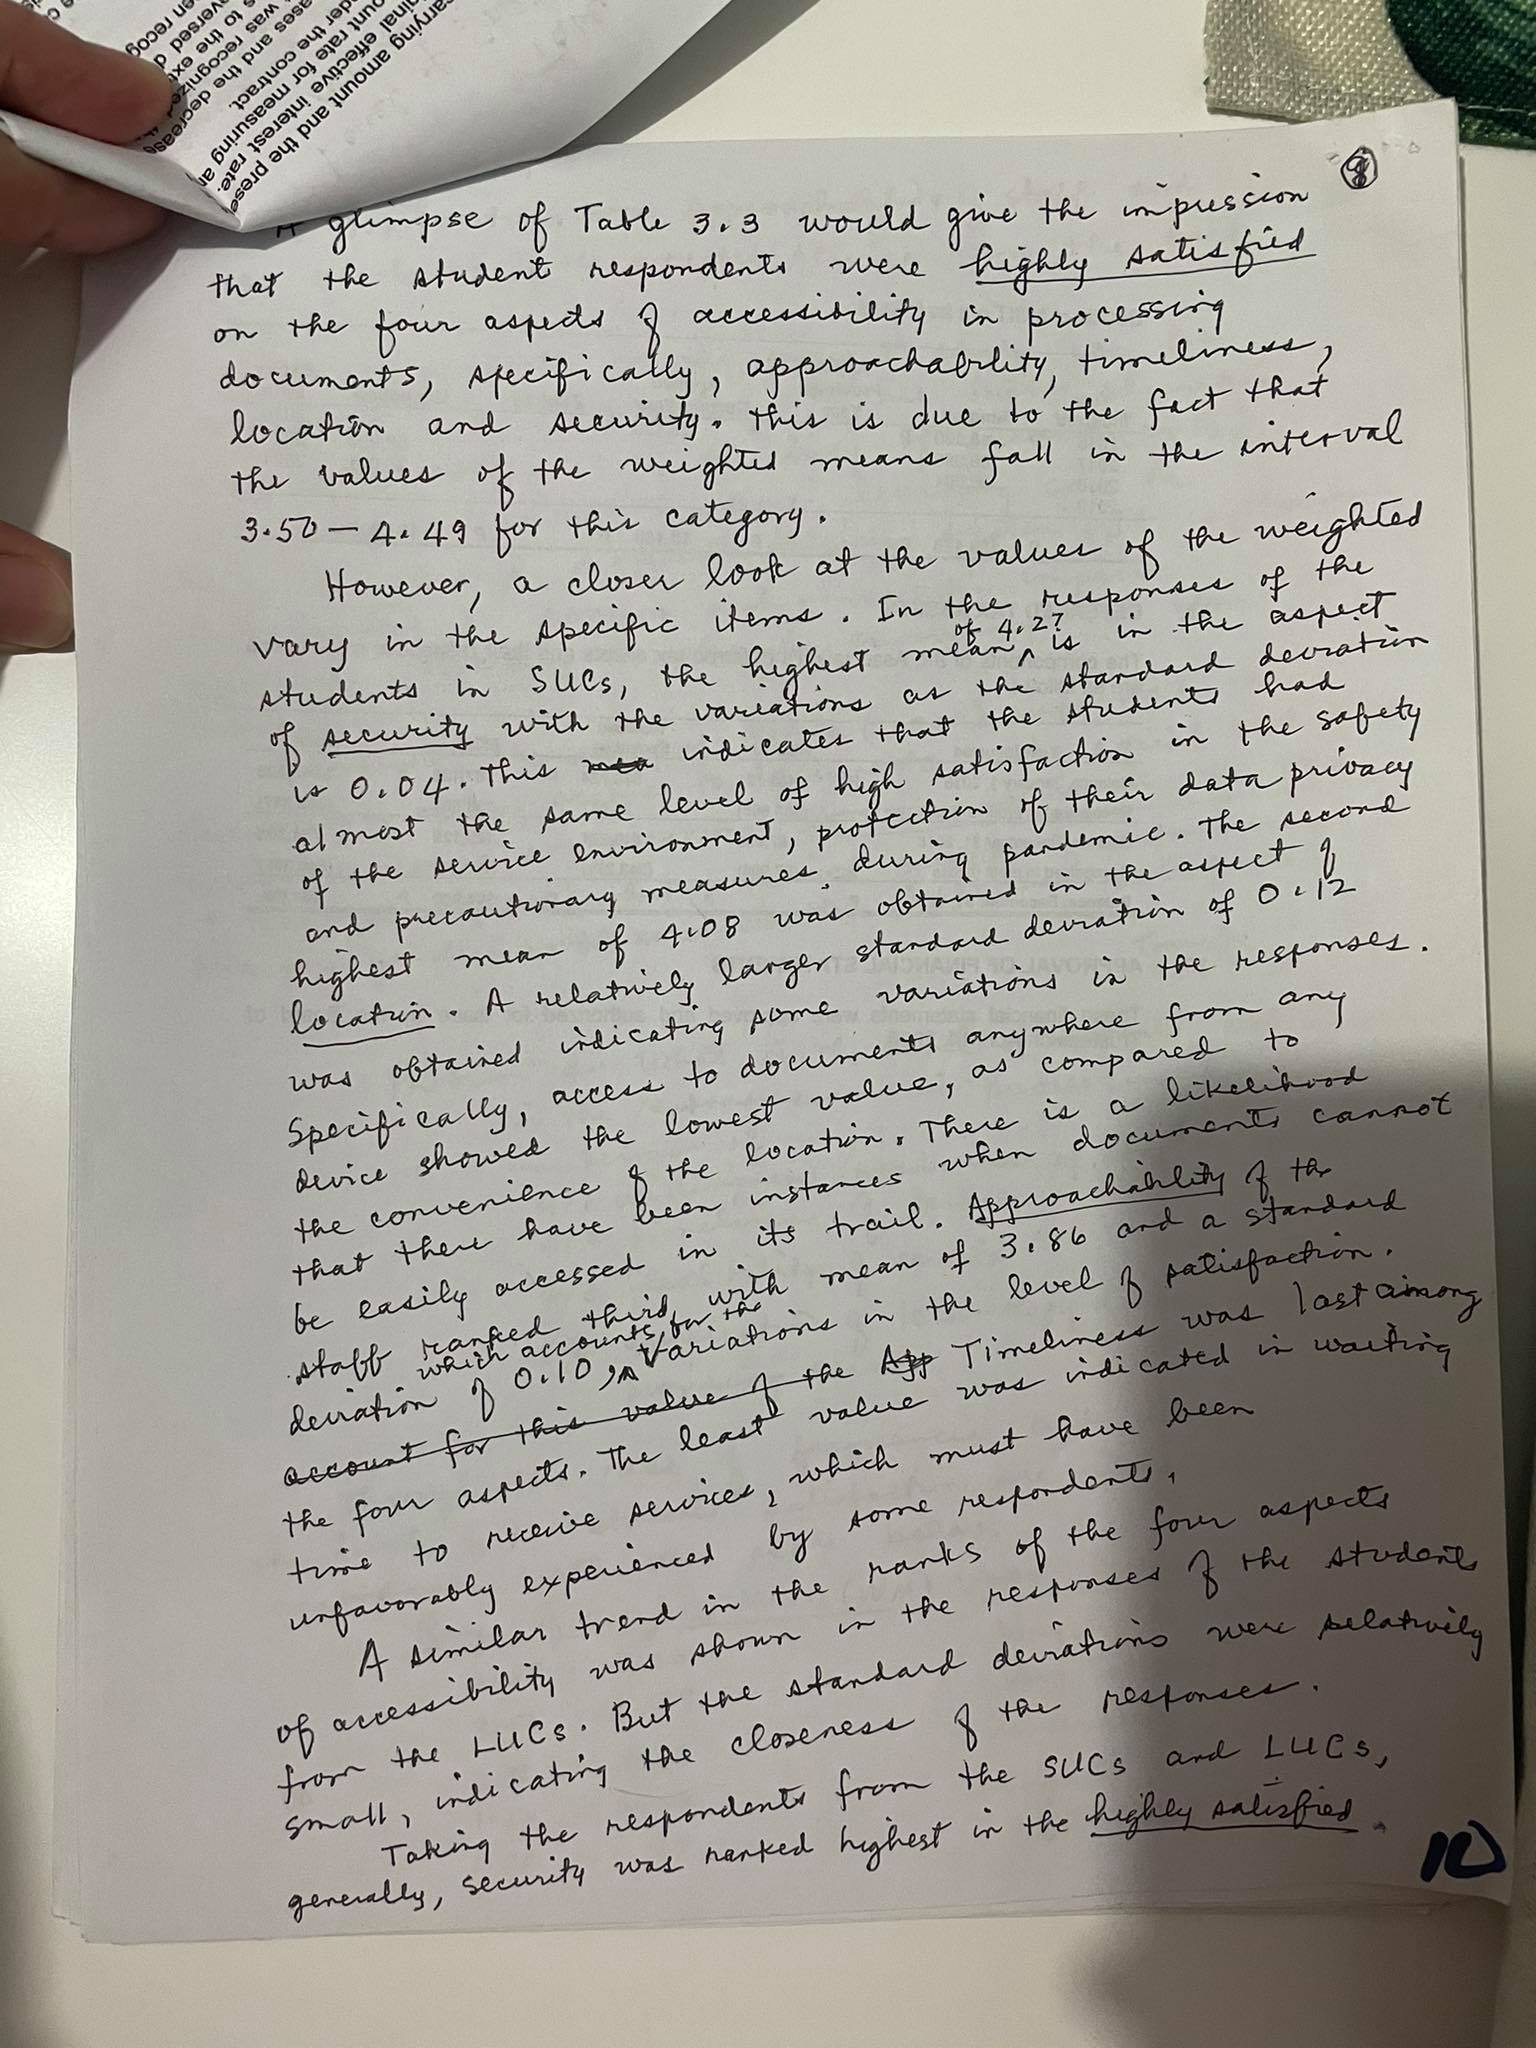 carrying amount and the prese
ginal effective interest rate.
ount rate for measuring an
der the contract.
ases and the decrease
was recognized
to the ex
versed d
en recog
8
A glimpse of Table 3.3 would give the impression
that the student respondents were highly satisfied
on the four aspects of accessibility in processing
documents, specifically, approachability, timeliness,
location and security. This is due to the fact that
the values of the weighted means fall in the interval
3.50 – 4.49 for this category.
However, a closer look at the values of the weighted
vary in the specific items. In the responses of the
students in SUCs, the highest mean of 4.27 is in the aspect
of security with the variations as the standard deviation
is 0.04. This indicates that the students had
almost the same level of high satisfaction in the safety
of the service environment, protection of their data privacy
and precautionary measures during pandemic. The second
highest mean of 4.08 was obtained in the aspect of
location. A relatively larger standard deviation of 0.12
was obtained indicating some variations in the responses.
Specifically, access to documents anywhere from any
device showed the lowest value, as compared to
the convenience of the location. There is a likelihood
that there have been instances when documents cannot
be easily accessed in its trail. Approachability of the
staff ranked third with mean of 3.86 and a standard
deviation of 0.10, which accounts for the variations in the level of satisfaction.
account for this value of the App Timeliness was last among
the four aspects. The least value was indicated in waiting
time to receive services, which must have been
unfavorably experienced by some respondents.
A similar trend in the ranks of the four aspects
of accessibility was shown in the responses of the students
from the LUCs. But the standard deviations were relatively
small, indicating the closeness of the responses.
Taking the respondents from the SUCs and LUCs,
generally, security was ranked highest in the highly satisfied.
10